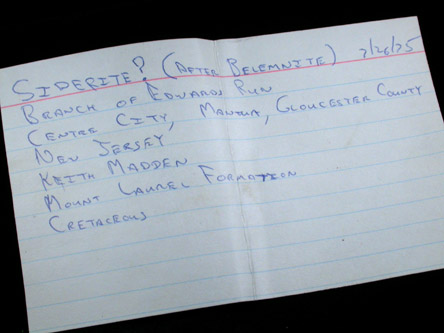 SIDERITE? (AFTER BELEMNITE) 7/26/75
BRANCH OF EDWARDS RUN
CENTRE CITY, MANTUA, GLOUCESTER COUNTY
NEW JERSEY
KEITH MADDEN
MOUNT LAUREL FORMATION
CRETACEOUS